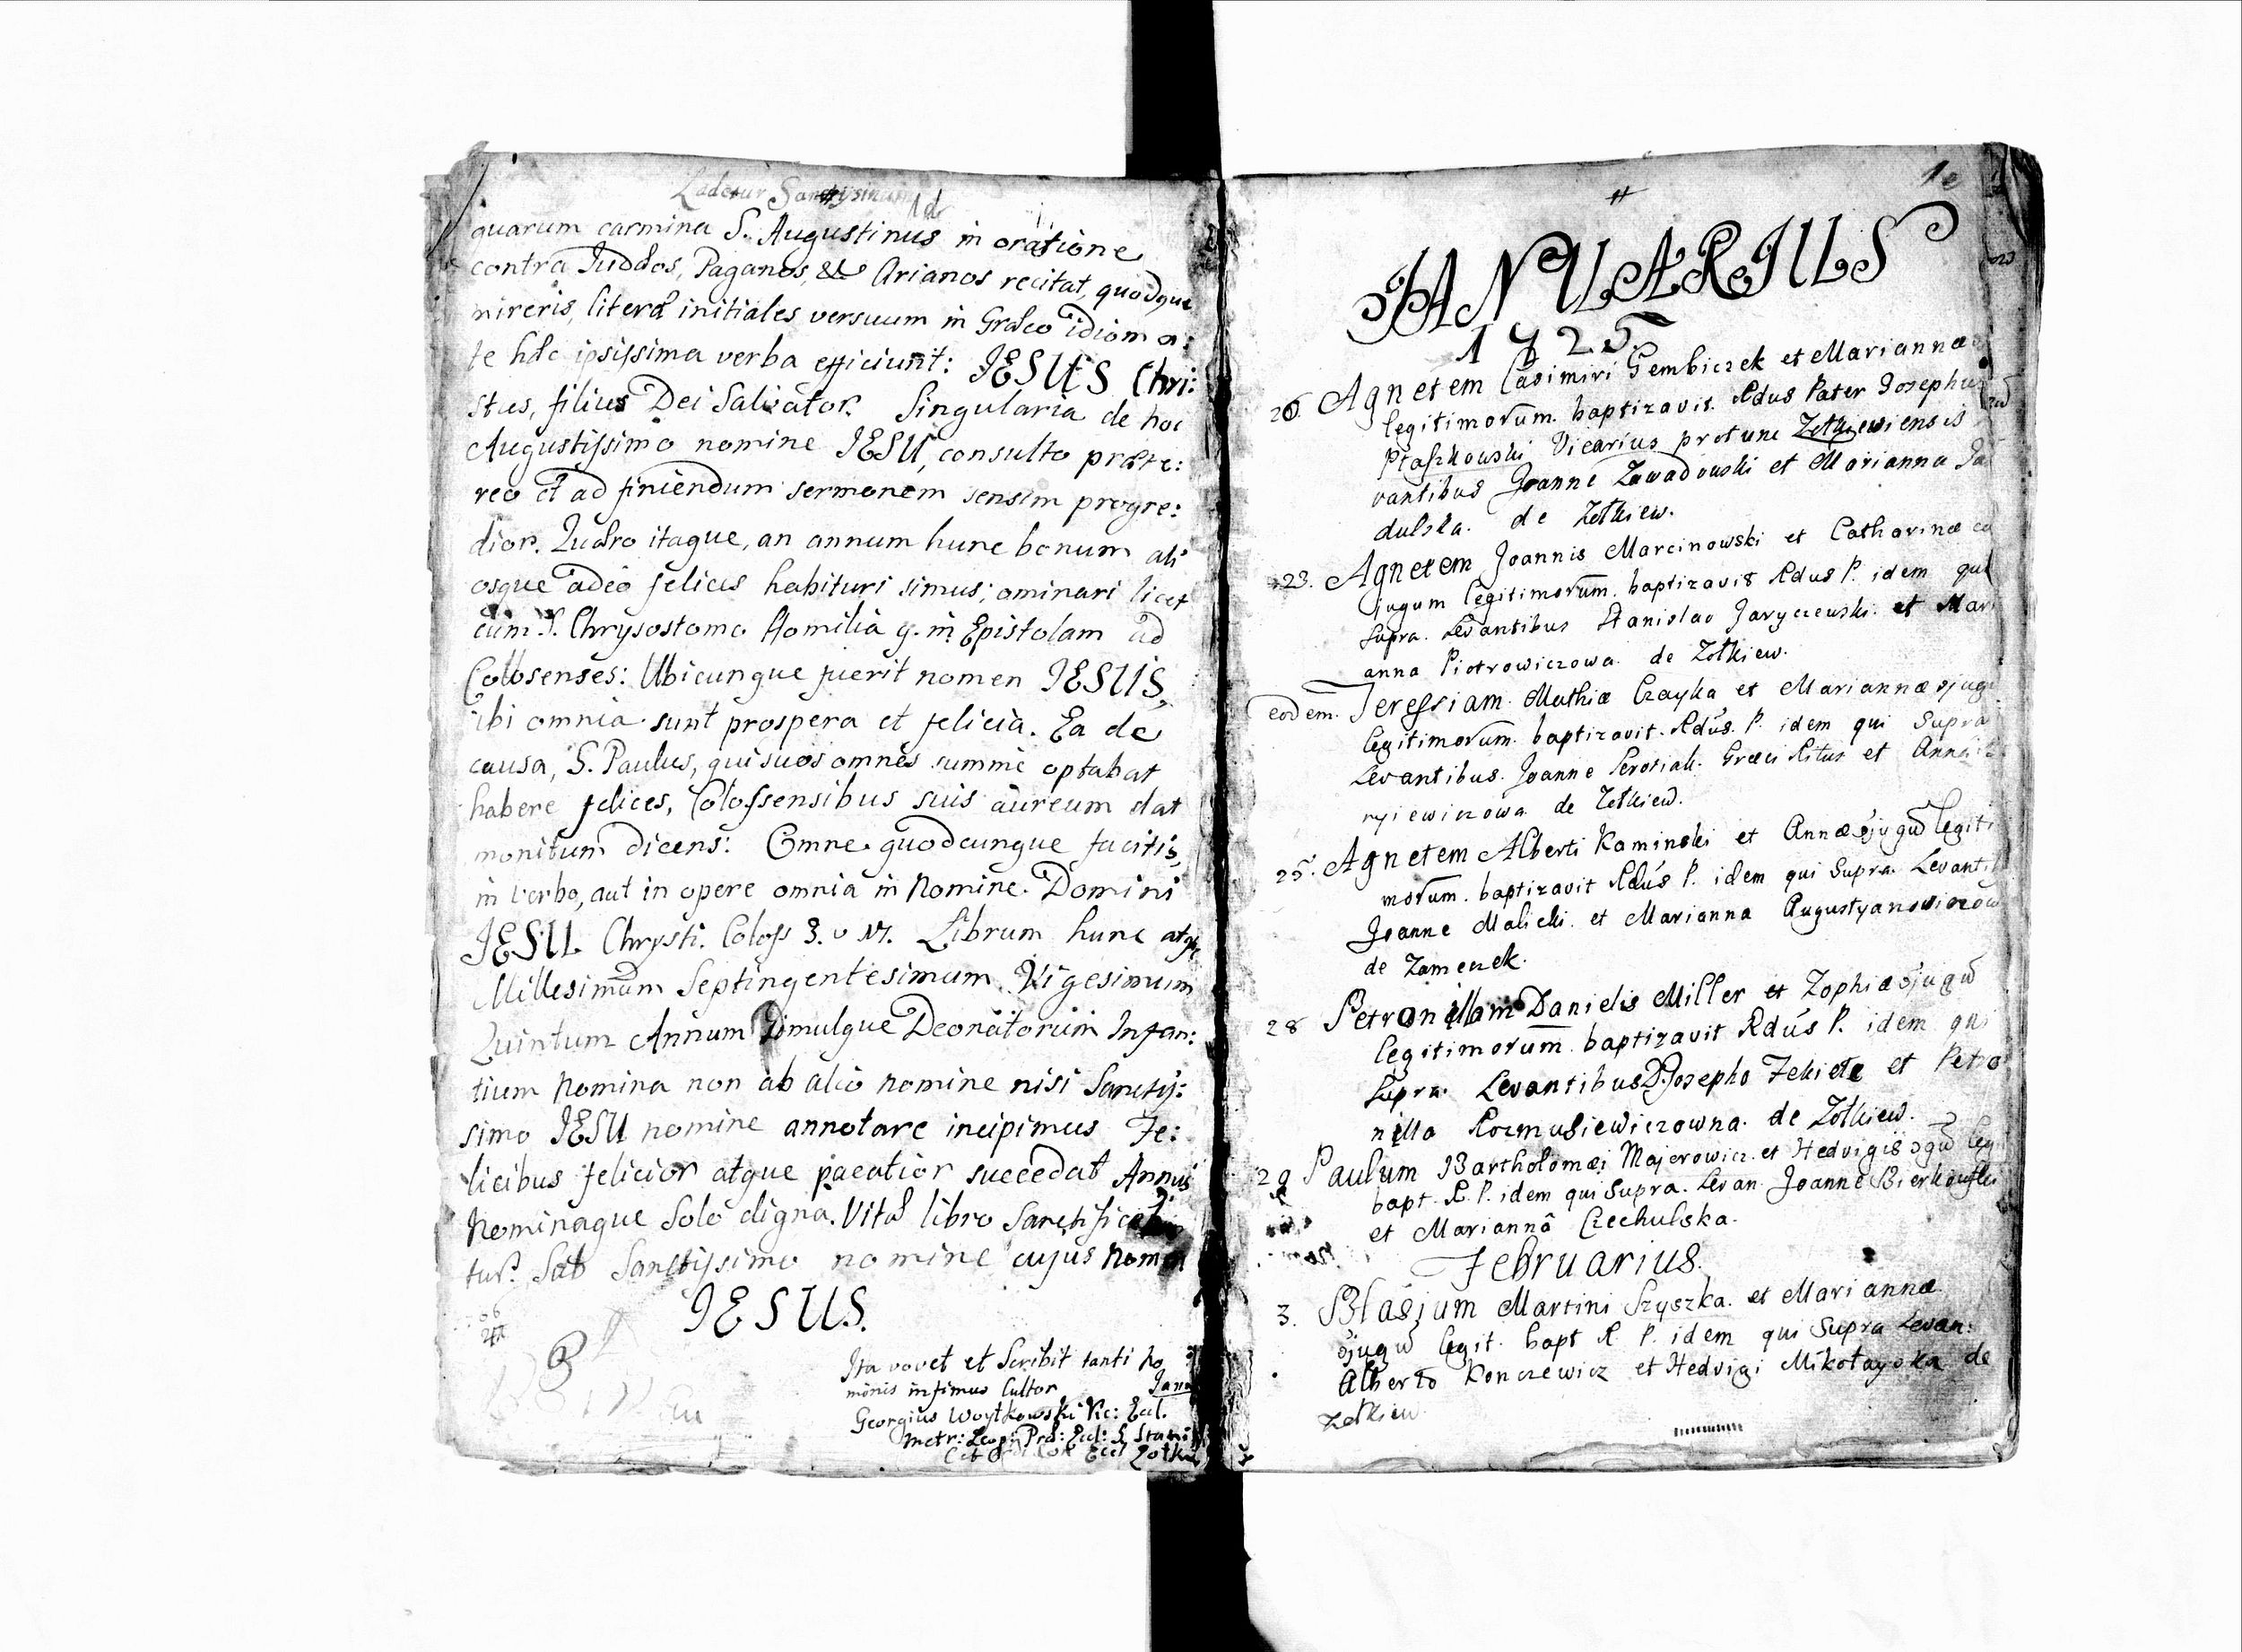 Ladetur Sanctysimum
quarum carmina S. Augustinus in oratione
contra Judæos, Paganos, & Arianos recitat, quodque
mireris, literæ initiales versuum in Græco idioma:
te hæc ipsissima verba efficiunt: JESUS Chri:
stus, filius Dei Salvator. Singularia de hoc
Augustissimo nomine JESU, consulto præte:
reo et ad finiendum sermonem sensim progre:
dior. Quæro itaque, an annum hunc bonum ali
osque adeo felices habituri simus; ominari licet
cum S. Chrysostomo Homilia 9. in Epistolam ad
Colosenses: Ubicunque fuerit nomen JESUS,
ibi omnia sunt prospera et felicia. Ea de
causa, S. Paulus, qui suos omnes summe optabat
habere felices, Colossensibus suis aureum dat
monitum dicens: Omne quodcunque facitis,
in verbo, aut in opere omnia in Nomine Domini
JESU Chrysti. Coloss 3. v 17. Librum hunc atq;
Millesimum Septingentesimum Vigesimum
Quintum Annum Simulque Deonatorum Infan:
tium Nomina non ab alio nomine nisi Sanctis:
simo JESU nomine annotare incipimus Fe:
licibus felicior atque pacatior succedat Annus
Nominaque Solo digna. Vitæ libro Sanctific
tur. Sub Sanctissimo nomine cujus Nomen
JESUS.
Ita vovet et Scribit tanti No
minis infimus Cultor
Georgius Woytkowski Vic: Eccl.
Metr: Leop: Præ: Eccl: S. Stani
Eccl Zołkie
1
JANUARIUS
1725
26. Agnetem Casimiri Gembiczek et Mariannæ
legitimorum. baptizavit Rdus Pater Josephus
Ptaszkowski Vicarius protunc Zołkiewiensis
vantibus Joanne Zawadowski et Marianna Ja
dulska. de Zołkiew.
23. Agnetem Joannis Marcinowski et Catharinæ co
jugum legitimorum. baptizavit Rdus P. idem qui
Supra. Levantibus Stanislao Jaryczewski et Mari
anna Piotrowiczowa de Zołkiew.
eodem. Teressiam Mathiæ Czayka et Mariannæ ɔjugu
legitimorum. baptizavit Rdus. P. idem qui Supra
Levantibus. Joanne Perosiak. Græci Ritus et Anna
ryiewiczowa de Zołkiew.
25. Agnetem Alberti Kaminski et Annæ ɔjugu legiti
morum. baptizavit Rdus P. idem qui Supra. Levanti
Joanne Malicki. et Marianna Augustyanowiczow
de Zameczek.
28 Petronillam Danielis Miller et Zophiæ ɔjugu
legitimorum. baptizavit Rdus P. idem qui
Supra. Levantibus D. Josepho Fekiete et Petro
nilla Rozmusiewiczowna. de Zołkiew.
29 Paulum Bartholomæi Majerowicz et Hedvigis ɔgu leg
bapt. R. P. idem qui Supra. Levan. Joanne Bierkowski
et Mariannâ Czechulska.
Februarius.
3. Blasium Martini Szyszka et Mariannæ
ɔjugu legit. bapt R. P. idem qui Supra Levan:
Alberto Konczewicz et Hedvigi Mikołayska de
Zołkiew